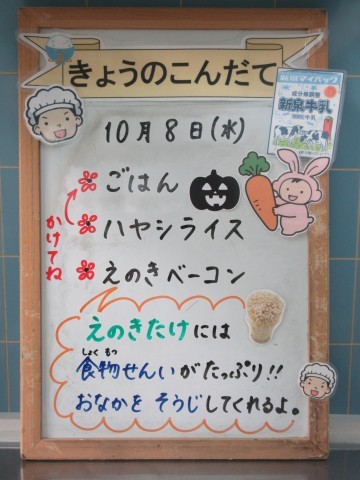 きょうのこんだて
成分無調整
新泉牛乳
10月8日(水)
ごはん
ハヤシライス
かけてね
えのきベーコン
えのきたけには
しょく もつ
食物せんいがたっぷり!!
おなかを そうじしてくれるよ。